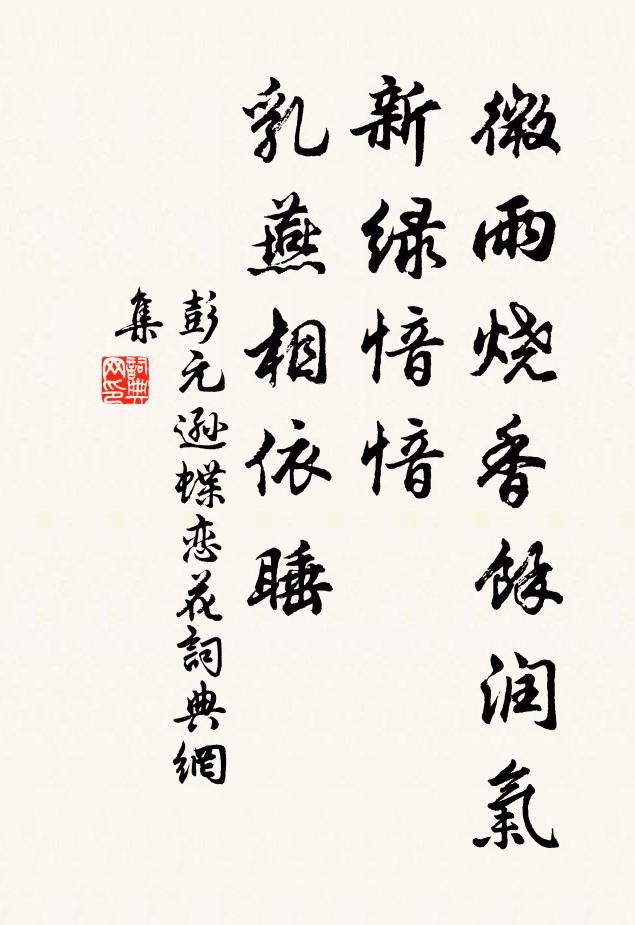 微雨烧香餘润氣
新绿愔愔
乳燕相依睡
彭元遜蝶恋花詞典網
集
詞典
网印